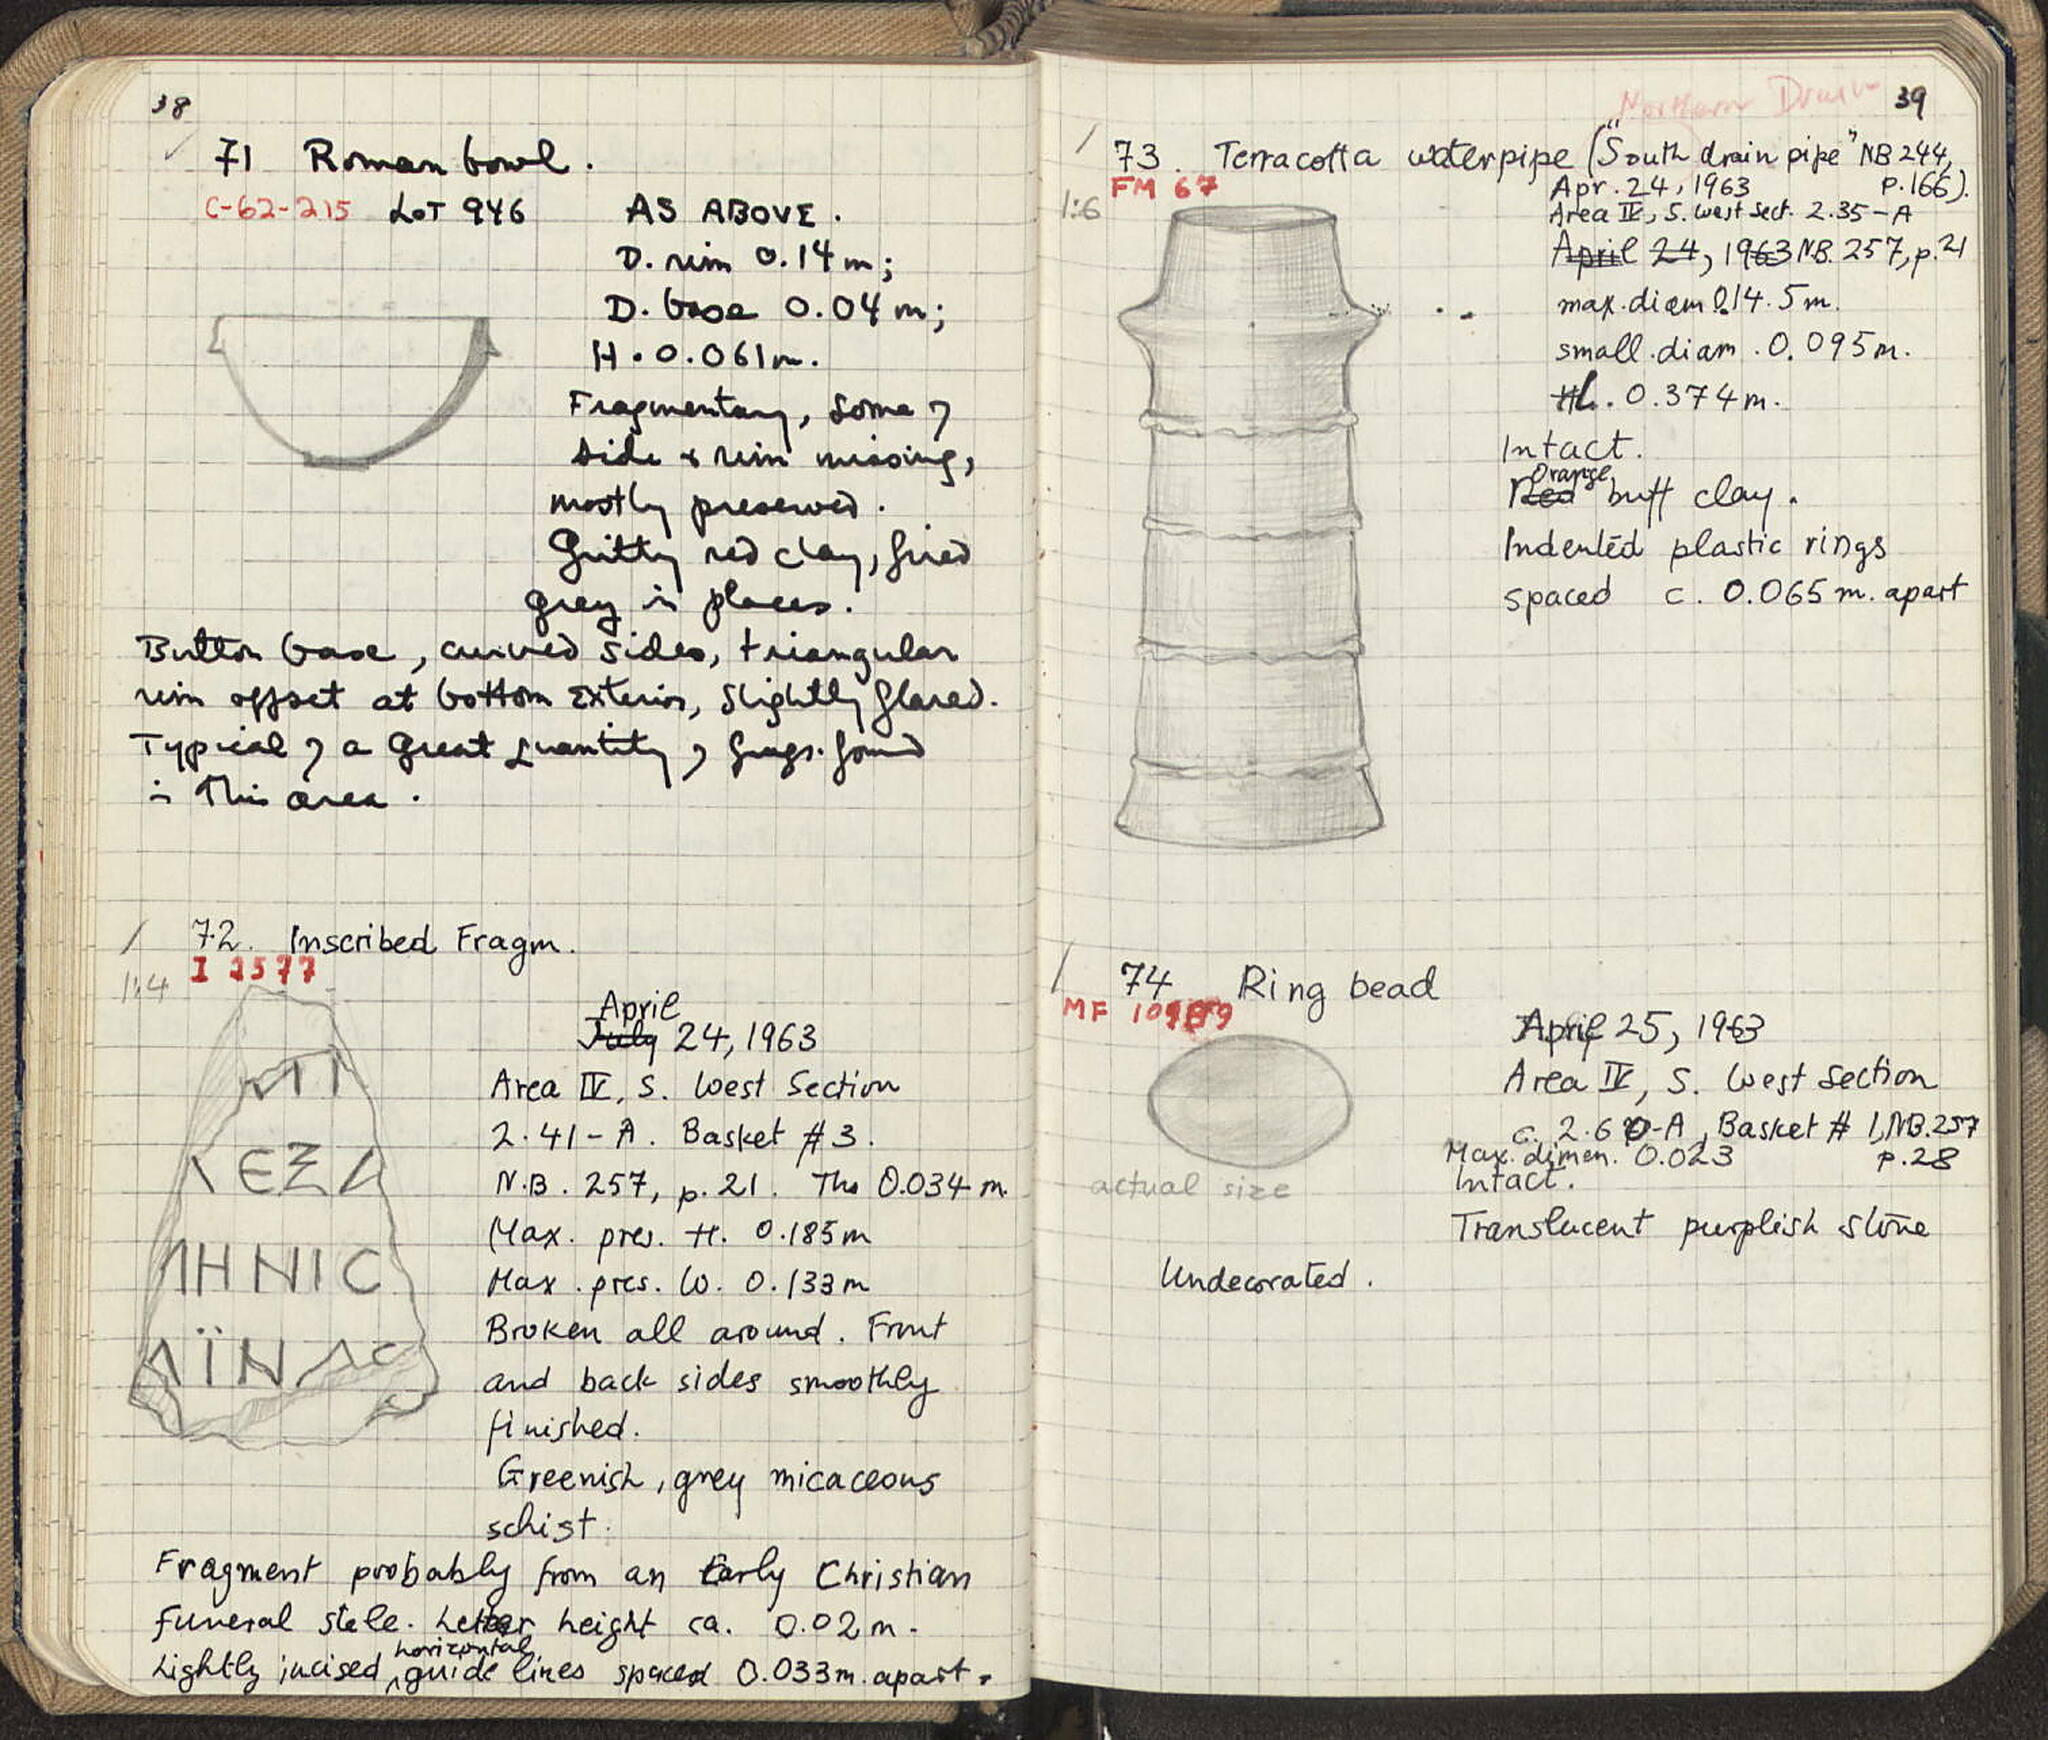 38
71 Roman bowl.
C-62-215 LOT 946 AS ABOVE.
D. rim 0.14 m;
D. base 0.04 m;
H. 0.061 m.
Fragmentary, some of
side & rim missing,
mostly preserved.
Gritty red clay, fired
grey in places.
Button base, curved sides, triangular
rim offset at bottom exterior, slightly flared.
Typical of a great quantity of frags. found
in this area.
72. Inscribed Fragm.
I 2577
1:4
April
July 24, 1963
Area IV, S. West Section
2.41-A. Basket #3.
N.B. 257, p. 21. Th. 0.034 m.
Max. pres. H. 0.185 m
Max. pres. W. 0.133 m
Broken all around. Front
and back sides smoothly
finished.
Greenish, grey micaceous
schist.
ΛΕΞΑ
ΛΗΝΙC
ΑΪΝΑC
Fragment probably from an Early Christian
funeral stele. Letter height ca. 0.02 m.
horizontal
Lightly incised, guide lines spaced 0.033 m. apart.
Northern Drain 39
73. Terracotta waterpipe ("South drain pipe" NB 244,
FM 67 Apr. 24, 1963 p. 166).
1:6
Area IV, S. West Sect. 2.35-A
April 24, 1963 N.B. 257, p. 21
max. diam 0.14.5 m.
small. diam. 0.095 m.
H. 0.374 m.
Intact.
Orange
Red buff clay.
Indented plastic rings
spaced c. 0.065 m. apart
74 Ring bead
MF
April 25, 1963
Area IV, S. West Section
c. 2.60-A, Basket # 1, NB. 257
Max. dimen. 0.023 p. 28
Intact.
actual size
Translucent purplish stone
Undecorated.